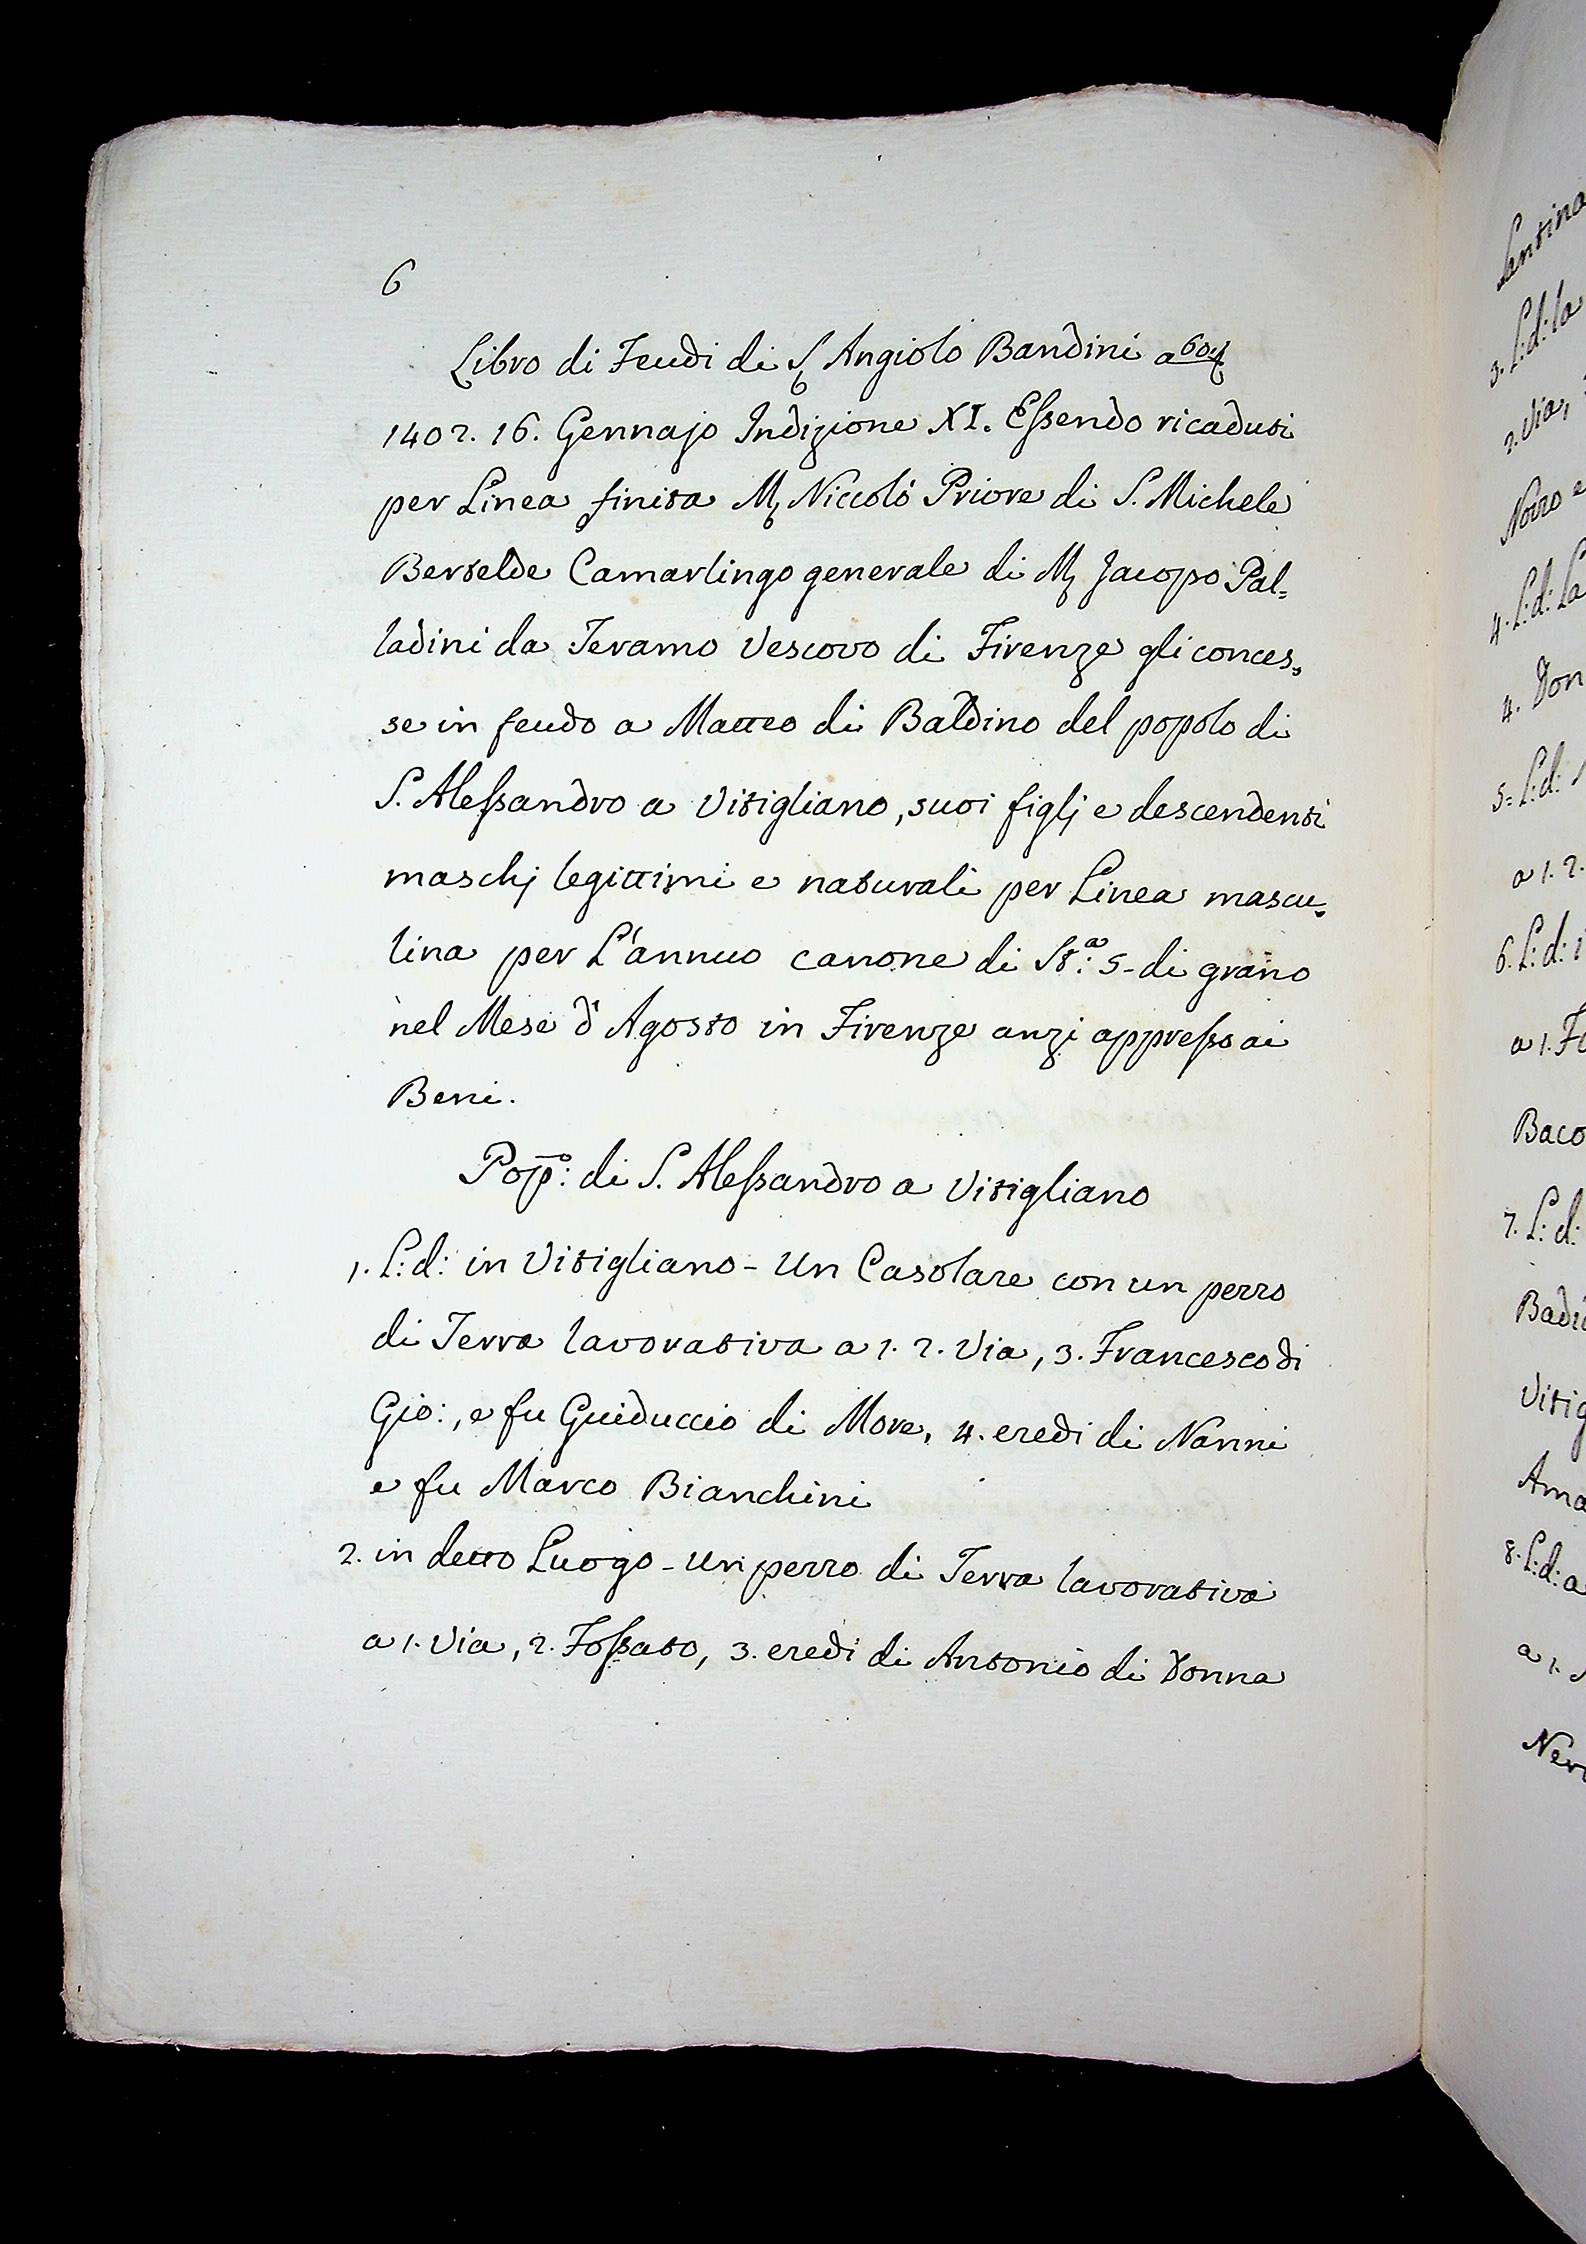 6
Libro di Feudi di S. Angiolo Bandini a 60.
1402. 16. Gennajo Indizione XI. Essendo ricaduti
per Linea finita M. Niccolò Priore di S. Michele
Bertelde Camarlingo generale di M. Jacopo Pal=
ladini da Teramo Vescovo di Firenze gli conces=
se in feudo a Matteo di Baldino del popolo di
S. Alessandro a Vitigliano, suoi figlj e descendenti
maschj legittimi e naturali per Linea mascu=
lina per L'annuo canone di St.ª: 5- di grano
nel Mese d'Agosto in Firenze anzi appresso ai
Beni.
Pop.º: di S. Alessandro a Vitigliano
1. L: d: in Vitigliano - Un Casolare con un pezzo
di Terra lavorativa a 1. 2. Via, 3. Francesco di
Gio:, e fu Guiduccio di More, 4. eredi di Nanni
e fu Marco Bianchini
2. in detto Luogo - Un pezzo di Terra lavorativa
a 1. Via, 2. Fossato, 3. eredi di Antonio di Donna
3. L: d: la
2. Via,
4. L: d: La
4. Don
5= L: d:
a 1. 2.
6. L: d: i
a 1. Fo
Baco
7. L: d:
Badi
Vitig
Ama
8. L: d: a
a 1.
Neri